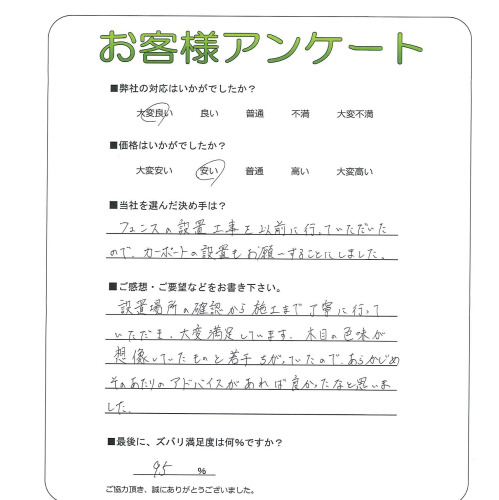 お客様アンケート
■弊社の対応はいかがでしたか？
大変良い 良い 普通 不満 大変不満
■価格はいかがでしたか？
大変安い 安い 普通 高い 大変高い
■当社を選んだ決め手は？
フェンスの設置工事を以前に行っていただいた
ので、カーポートの設置もお願いすることにしました。
■ご感想・ご要望などをお書き下さい。
設置場所の確認から施工まで丁寧に行って
いただき、大変満足しています。木目の色味が
想像していたものと若干ちがっていたので、あらかじめ
そのあたりのアドバイスがあれば良かったなと思いま
した。
■最後に、ズバリ満足度は何%ですか？
95 %
ご協力頂き、誠にありがとうございました。